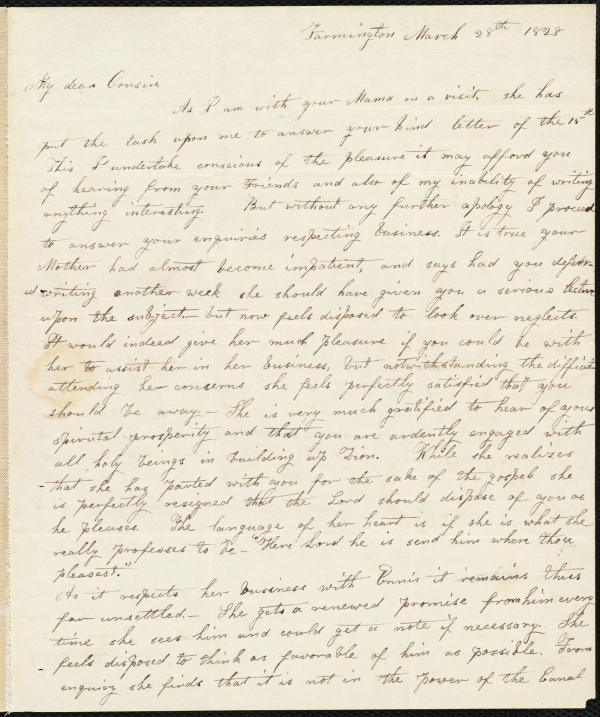 Farmington March 28th 1828
My dear Cousin,
As I am with your Mama on a visit, she has
put the task upon me to answer your kind letter of the 15th
This I undertake conscious of the pleasure it may afford you
of hearing from your Friends and also of my inability of writing
anything interesting. But without any further apology I proceed
to answer your enquiries respecting business. It is true your
Mother had almost become impatient, and says had you deferr-
ed writing another week she should have given you a serious lecture
upon the subject – but now feels disposed to look over neglects.
It would indeed give her much pleasure if you could be with
her to assist her in her business, but notwithstanding the difficulties
attending her concerns she feels perfectly satisfied that you
should be away – She is very much gratified to hear of your
spirutal prosperity and that you are ardently engaged with
all holy beings in building up Zion. While she realizes
that she has parted with you for the sake of the gospel she
is perfectly resigned that the Lord should dispose of you as
he pleases. The language of her heart is if she is what she
really professes to be – "Here Lord he is send him where thou
pleasest."
As it respects her business with Ennis it remains thus
far unsettled – She gets a renewed promise from him every
time she sees him and could get a note if necessary. She
feels disposed to think as favorable of him as possible. From
enquiry she finds that it is not in the power of the Canal